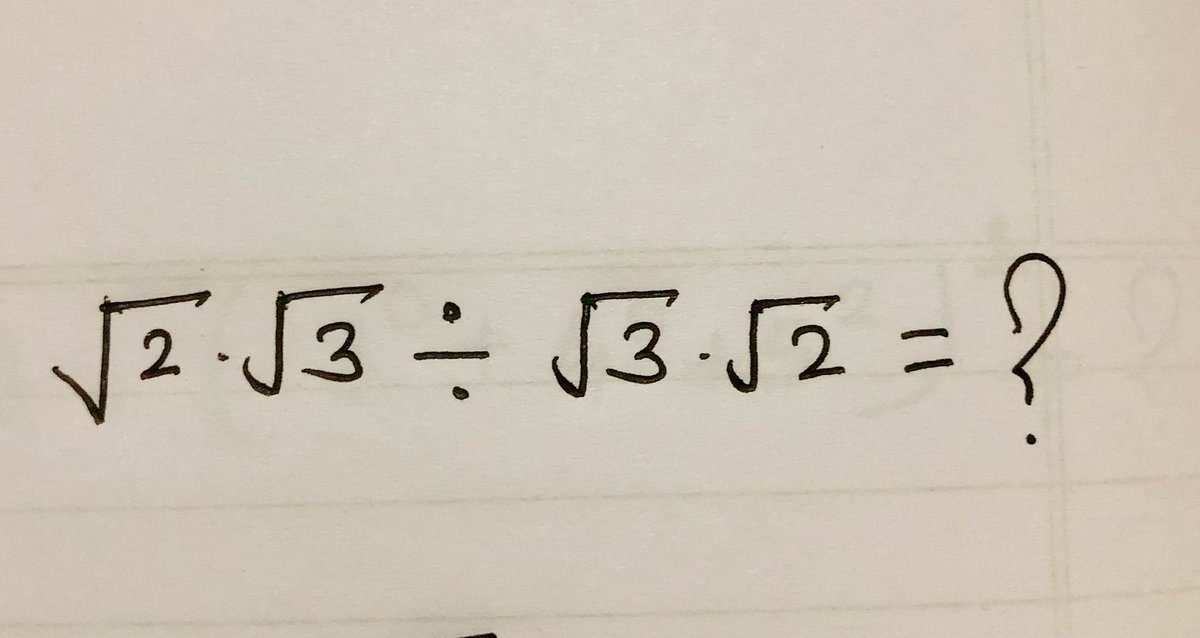 √2 · √3 ÷ √3 · √2 = ?